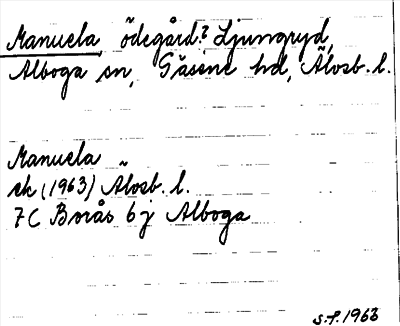 Manuela, ödegård? Ljungryd,
Alboga sn, Gäsene hd, Älvsb. l.
Manuela
ek (1963) Älvsb. l.
7C Borås 6 j Alboga
s.f. 1963